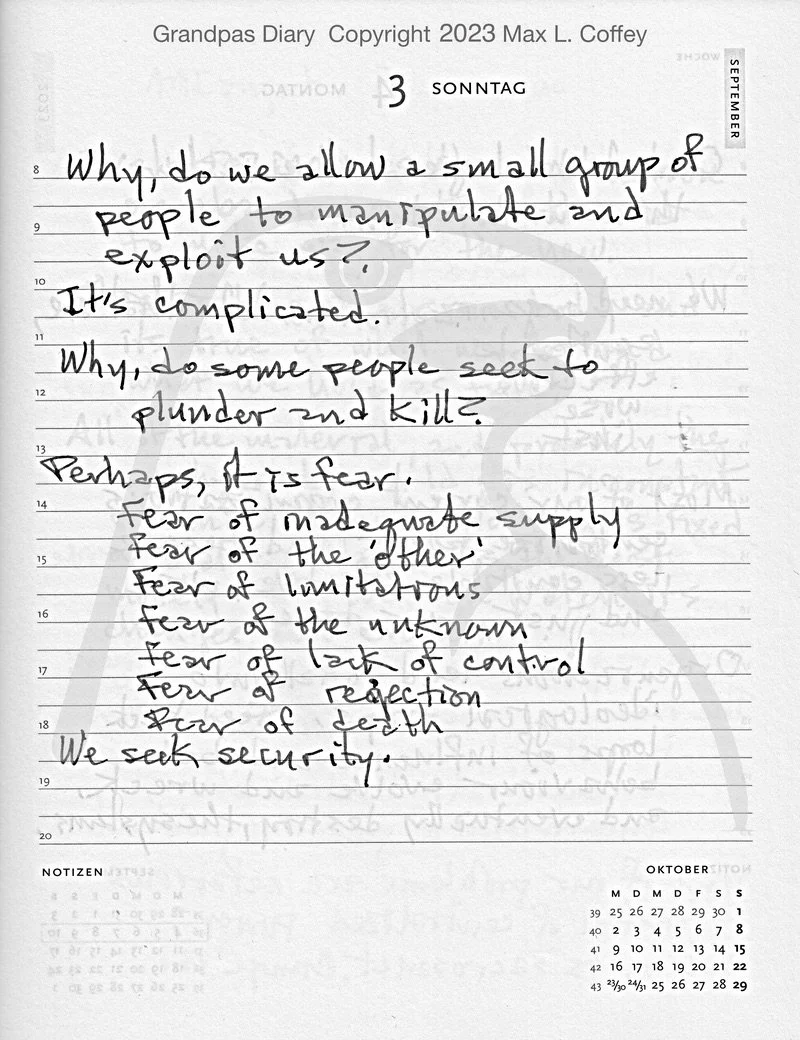 Grandpas Diary Copyright 2023 Max L. Coffey
3 SONNTAG
SEPTEMBER
8 Why, do we allow a small group of
9 people to manipulate and
exploit us?
10 It's complicated.
11 Why, do some people seek to
12 plunder and kill?
13 Perhaps, it is fear.
14 Fear of inadequate supply
15 Fear of the 'other'
Fear of limitations
16 Fear of the unknown
Fear of lack of control
17 Fear of rejection
18 Fear of death
We seek security.
19
20
NOTIZEN
OKTOBER
M D M D F S S
39 25 26 27 28 29 30 1
40 2 3 4 5 6 7 8
41 9 10 11 12 13 14 15
42 16 17 18 19 20 21 22
43 23/30 24/31 25 26 27 28 29